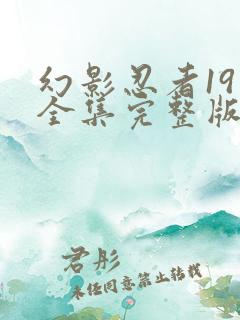 幻影忍者19
全集完整版
君彤
未经同意禁止转载